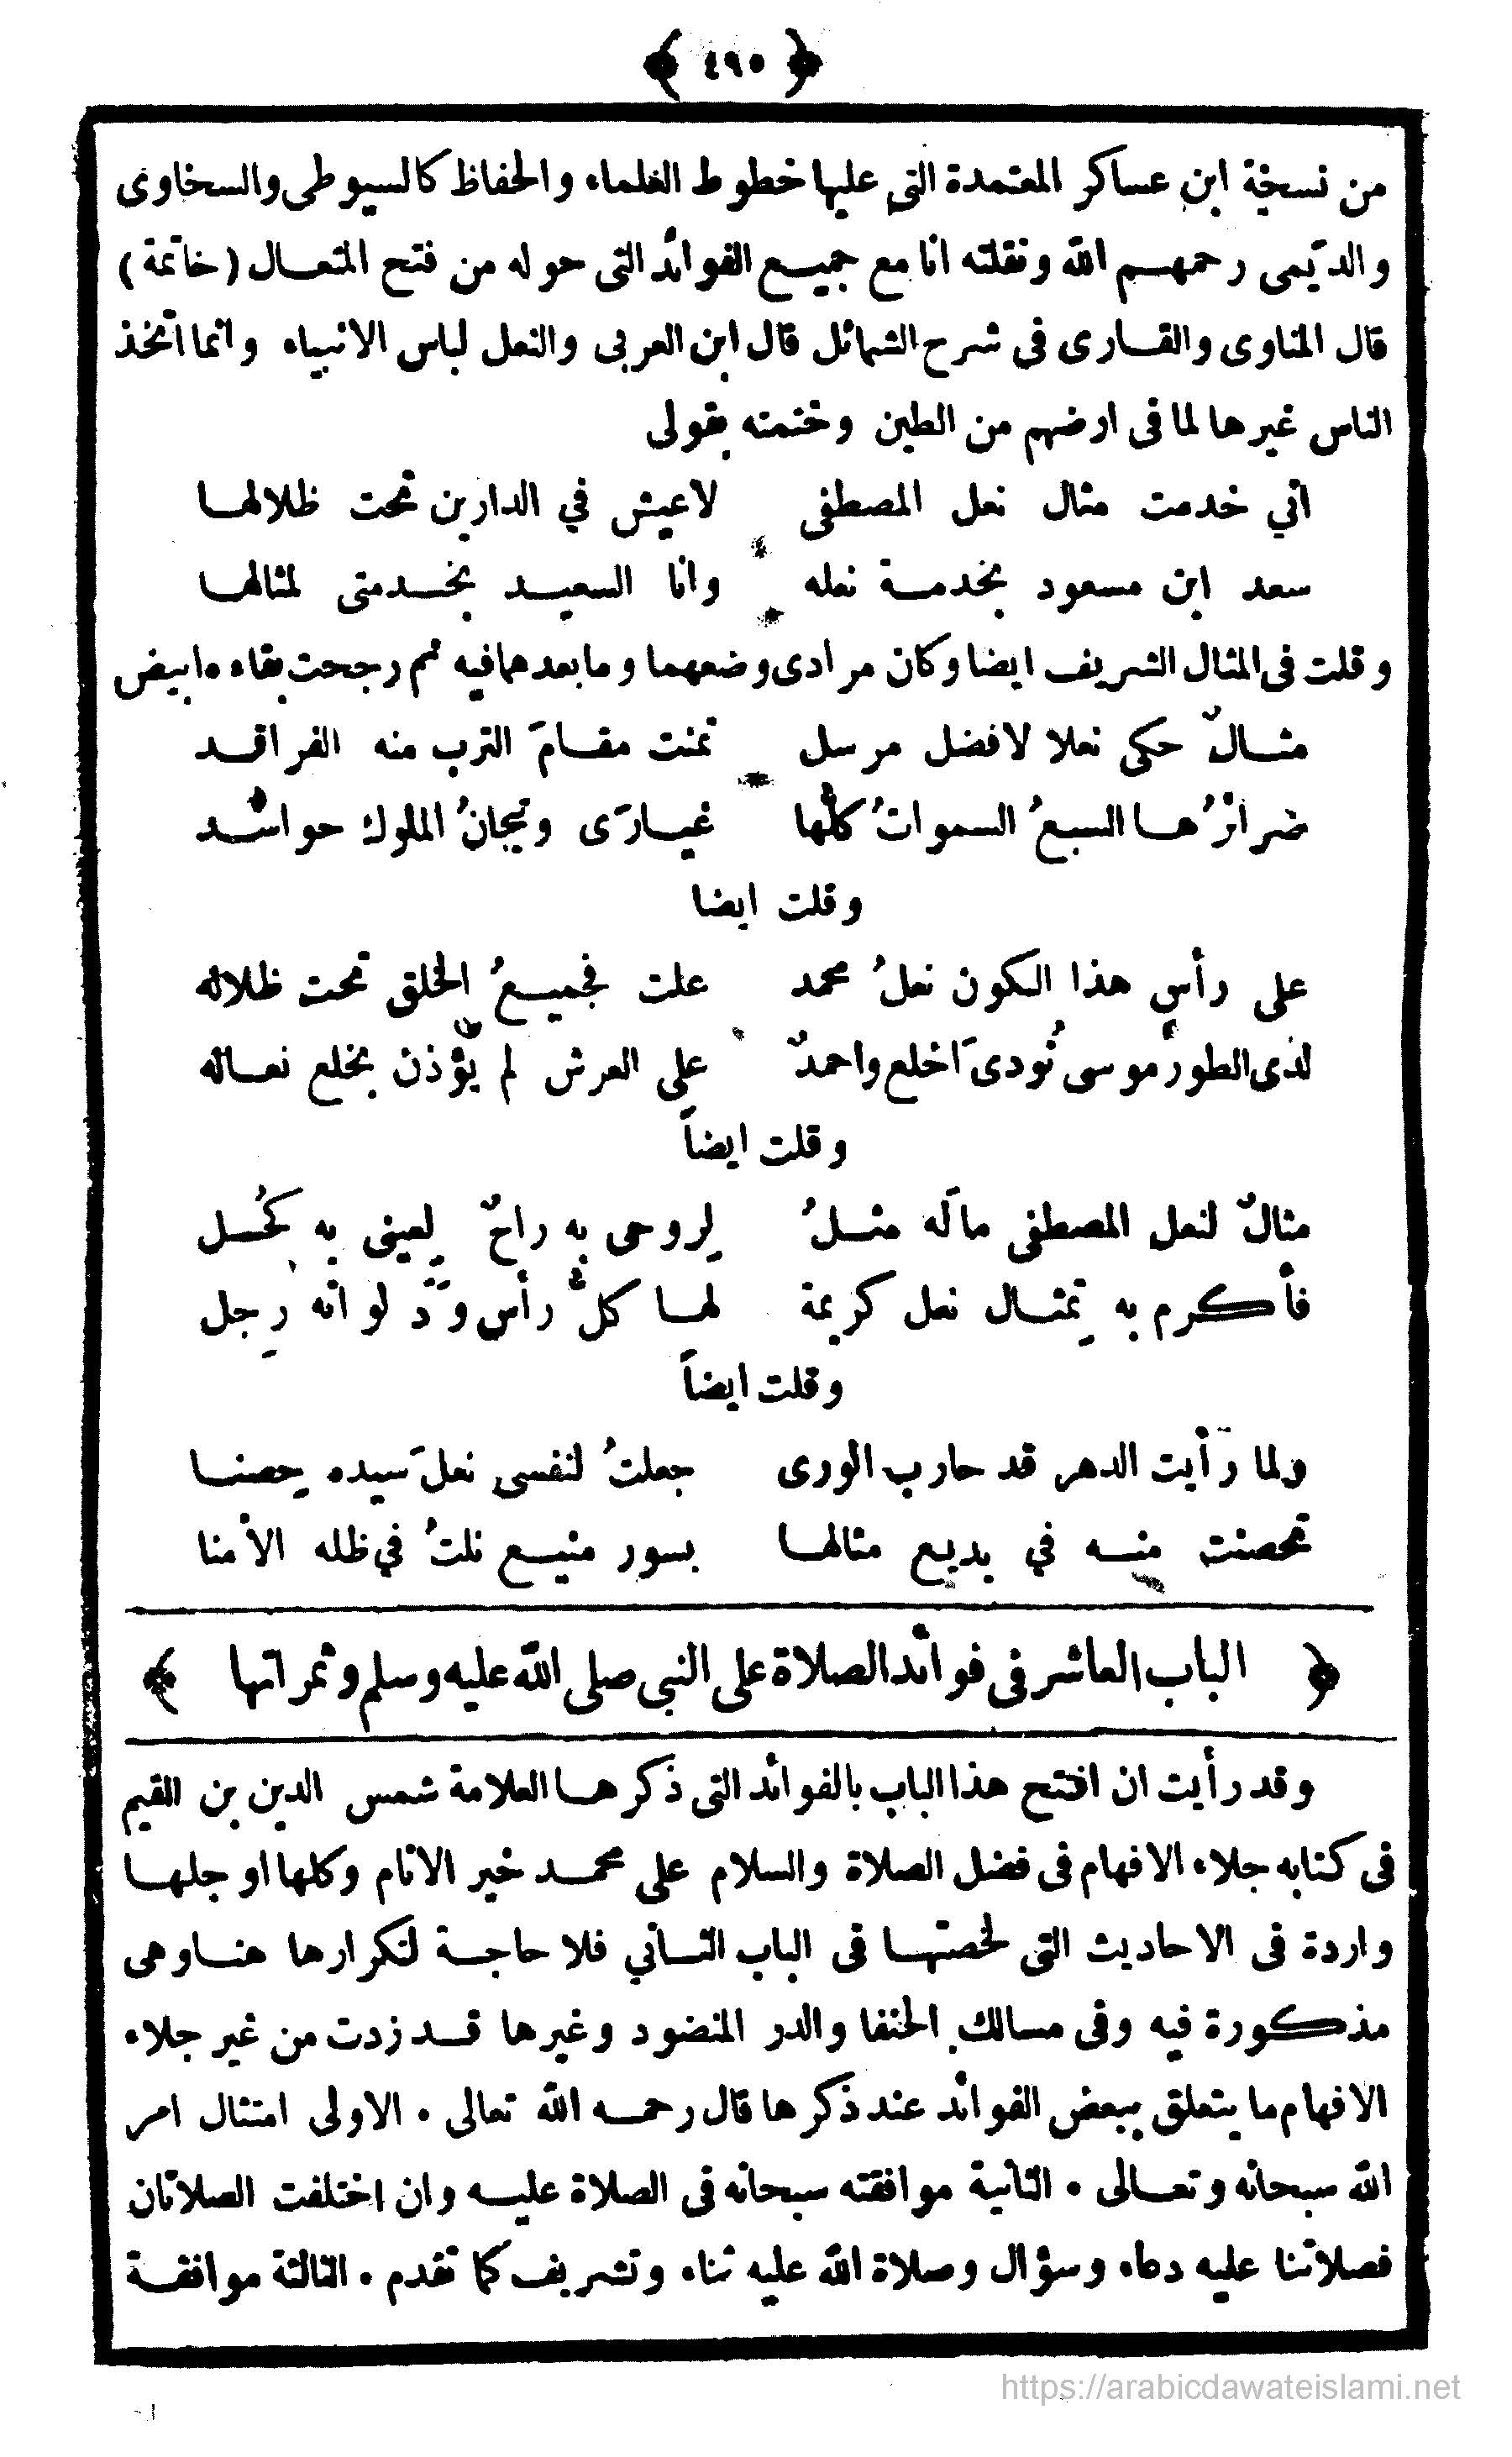 ﴿ ٤٩٥ ﴾
من نسخة ابن عساكر المعتمدة التى عليها خطوط العلماء والحفاظ كالسيوطى والسخاوى
والديمى رحمهم الله ونقلته انا مع جميع الفوائد التى حوله من فتح المتعال (خاتمة)
قال المناوى والقارى فى شرح الشمائل قال ابن العربى والنعل لباس الانبياء وانما اتخذ
الناس غيرها لما فى ارضهم من الطين وختمته بقولى
انى خدمت مثال نعل المصطفى لاعيش في الدارين تحت ظلالها
سعد ابن مسعود بخدمة نعله وانا السعيد بخدمتى لمثالها
وقلت فى المثال الشريف ايضا وكان مرادى وضعهما وما بعدهما فيه ثم رجحت بقاءه ابيض
مثالٌ حكى نعلا لافضل مرسل تمنت مقامَ الترب منه الفراقد
ضرائرُها السبعُ السمواتُ كلُّها غيارَى وتيجانُ الملوك حواسد
وقلت ايضا
على رأس هذا الكون نعلُ محمد علت فجميعُ الخلق تحت ظلاله
لدى الطور موسى نُودىَ اخلع واحمدٌ على العرش لم يُؤْذن بخلع نعاله
وقلت ايضاً
مثالٌ لنعل المصطفى مالَه مثلُ لِروحى بِه راحٌ لِعينى به كُحل
فأكرم به تِمثال نعل كريمة لها كلُّ رأس وَدَّ لو انه رِجل
وقلت ايضاً
ولما رَأيت الدهر قد حارب الورى جعلتُ لنفسى نعلَ سيده حِصنا
تحصنت منه في بديع مثالها بسور منيع نلتُ في ظله الأمنا
﴿ الباب العاشر فى فوائد الصلاة على النبى صلى الله عليه وسلم وثمراتها ﴾
وقد رأيت ان افتتح هذا الباب بالفوائد التى ذكرها العلامة شمس الدين بن القيم
فى كتابه جلاء الافهام فى فضل الصلاة والسلام على محمد خير الانام وكلها او جلها
واردة فى الاحاديث التى لخصتها فى الباب الثانى فلا حاجة لتكرارها هنا وهى
مذكورة فيه وفى مسالك الحنفا والدر المنضود وغيرها قد زدت من غير جلاء
الافهام ما يتعلق ببعض الفوائد عند ذكرها قال رحمه الله تعالى ٠ الاولى امتثال امر
الله سبحانه وتعالى ٠ الثانية موافقته سبحانه فى الصلاة عليه وان اختلفت الصلاتان
فصلاتنا عليه دعاء وسؤال وصلاة الله عليه ثناء وتشريف كما تقدم ٠ الثالثة موافقة
https://arabicdawateislami.net